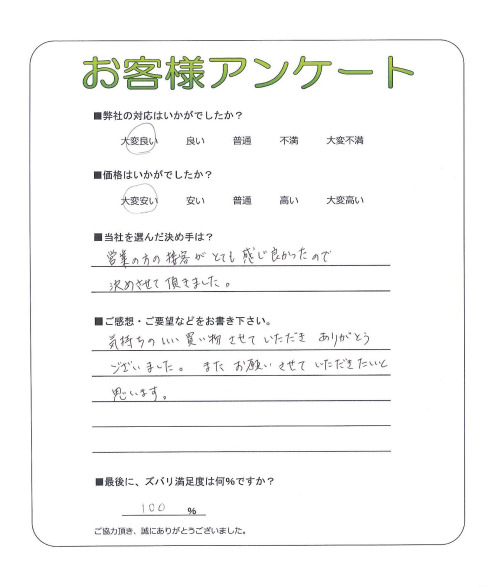 お客様アンケート
■弊社の対応はいかがでしたか？
大変良い 良い 普通 不満 大変不満
■価格はいかがでしたか？
大変安い 安い 普通 高い 大変高い
■当社を選んだ決め手は？
営業の方の接客がとても感じ良かったので
決めさせて頂きました。
■ご感想・ご要望などをお書き下さい。
気持ちのいい買い物させていただき ありがとう
ございました。 また お願いさせていただきたいと
思います。
■最後に、ズバリ満足度は何％ですか？
100 ％
ご協力頂き、誠にありがとうございました。